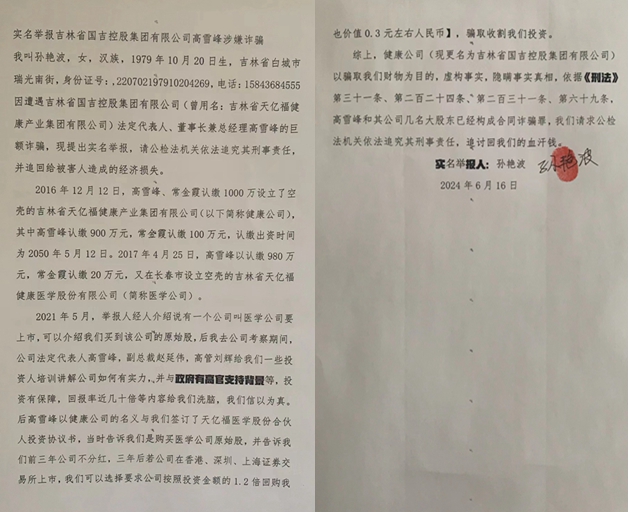 实名举报吉林省国吉控股集团有限公司高雪峰涉嫌诈骗
我叫孙艳波，女，汉族，1979年10月20日生，吉林省白城市
瑞光南街，身份证号：，220702197910204269，电话：15843684555
因遭遇吉林省国吉控股集团有限公司（曾用名：吉林省天亿福健
康产业集团有限公司）法定代表人、董事长兼总经理高雪峰的巨
额诈骗，现提出实名举报，请公检法机关依法追究其刑事责任，
并追回给被害人造成的经济损失。
2016年12月12日，高雪峰、常金霞认缴1000万设立了空
壳的吉林省天亿福健康产业集团有限公司（以下简称健康公司），
其中高雪峰认缴900万元，常金霞认缴100万元，认缴出资时间
为2050年5月12日。2017年4月25日，高雪峰以认缴980万
元，常金霞认缴20万元，又在长春市设立空壳的吉林省天亿福
健康医学股份有限公司（简称医学公司）。
2021年5月，举报人经人介绍说有一个公司叫医学公司要
上市，可以介绍我们买到该公司的原始股，后我去公司考察期间，
公司法定代表人高雪峰，副总裁赵延伟，高管刘辉给我们一些投
资人培训讲解公司如何有实力，并与政府有高官支持背景等，投
资有保障，回报率近几十倍等内容给我们洗脑，我们信以为真。
后高雪峰以健康公司的名义与我们签订了天亿福医学股份合伙
人投资协议书，当时告诉我们是购买医学公司原始股，并告诉我
们前三年公司不分红，三年后若公司在香港、深圳、上海证券交
易所上市，我们可以选择要求公司按照投资金额的1.2倍回购我
也价值0.3元左右人民币】，骗取收割我们投资。
综上，健康公司（现更名为吉林省国吉控股集团有限公司）
以骗取我们财物为目的，虚构事实，隐瞒事实真相，依据《刑法》
第三十一条、第二百二十四条、第二百三十一条、第六十九条，
高雪峰和其公司几名大股东已经构成合同诈骗罪，我们请求公检
法机关依法追究其刑事责任，追讨回我们的血汗钱。
实名举报人：孙艳波 孙艳波
2024年6月16日